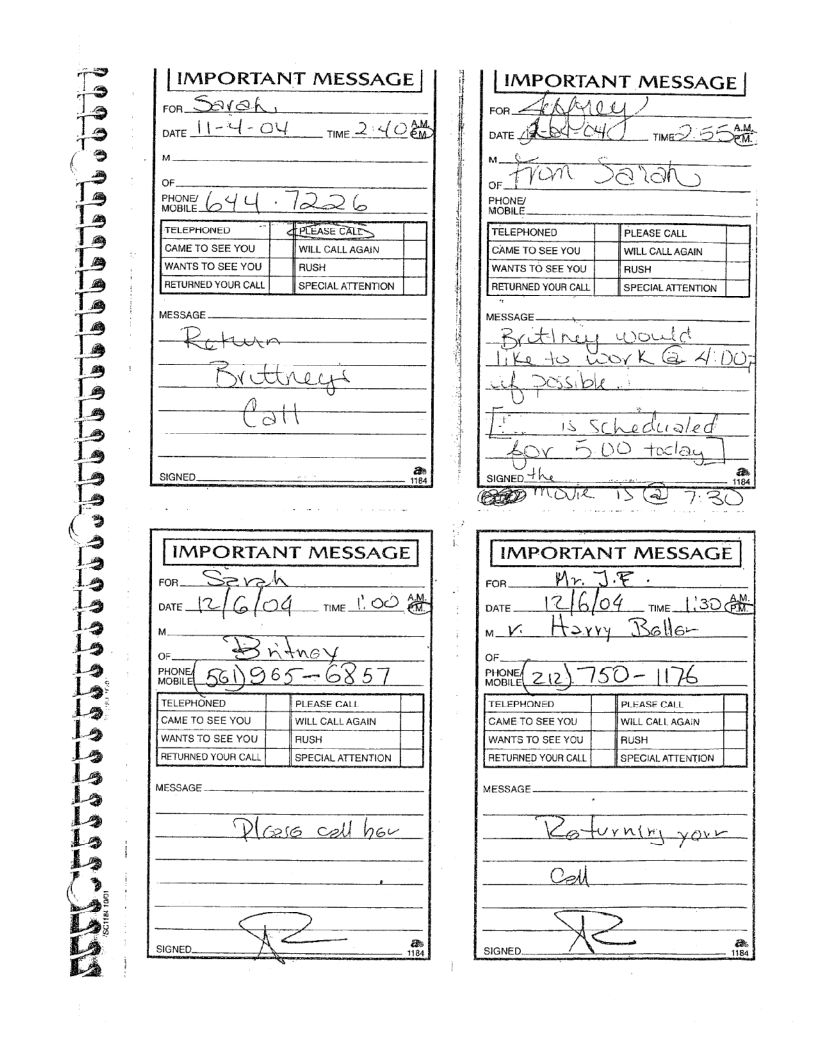 IMPORTANT MESSAGE
FOR Sarah
DATE 11-4-04 TIME 2:40 A.M. P.M.
M
OF
PHONE/ MOBILE 644 - 7226
TELEPHONED PLEASE CALL
CAME TO SEE YOU WILL CALL AGAIN
WANTS TO SEE YOU RUSH
RETURNED YOUR CALL SPECIAL ATTENTION
MESSAGE
Return
Brittney's
Call
SIGNED
1184
IMPORTANT MESSAGE
FOR Jeffrey
DATE 04 TIME 2:55 A.M. P.M.
M
OF From Sarah
PHONE/ MOBILE
TELEPHONED PLEASE CALL
CAME TO SEE YOU WILL CALL AGAIN
WANTS TO SEE YOU RUSH
RETURNED YOUR CALL SPECIAL ATTENTION
MESSAGE
Brittney would
like to work @ 4:00p
if possible.
is scheduled
for 5:00 today]
SIGNED the
1184
movie is @ 7:30
IMPORTANT MESSAGE
FOR Sarah
DATE 12/6/04 TIME 1:00 A.M. P.M.
M
OF Britney
PHONE/ MOBILE (561) 965-6857
TELEPHONED PLEASE CALL
CAME TO SEE YOU WILL CALL AGAIN
WANTS TO SEE YOU RUSH
RETURNED YOUR CALL SPECIAL ATTENTION
MESSAGE
Please call her
SIGNED
1184
IMPORTANT MESSAGE
FOR Mr. J.E.
DATE 12/6/04 TIME 1:30 A.M. P.M.
M r. Harry Beller
OF
PHONE/ MOBILE (212) 750-1176
TELEPHONED PLEASE CALL
CAME TO SEE YOU WILL CALL AGAIN
WANTS TO SEE YOU RUSH
RETURNED YOUR CALL SPECIAL ATTENTION
MESSAGE
Returning your
Call
SIGNED
1184